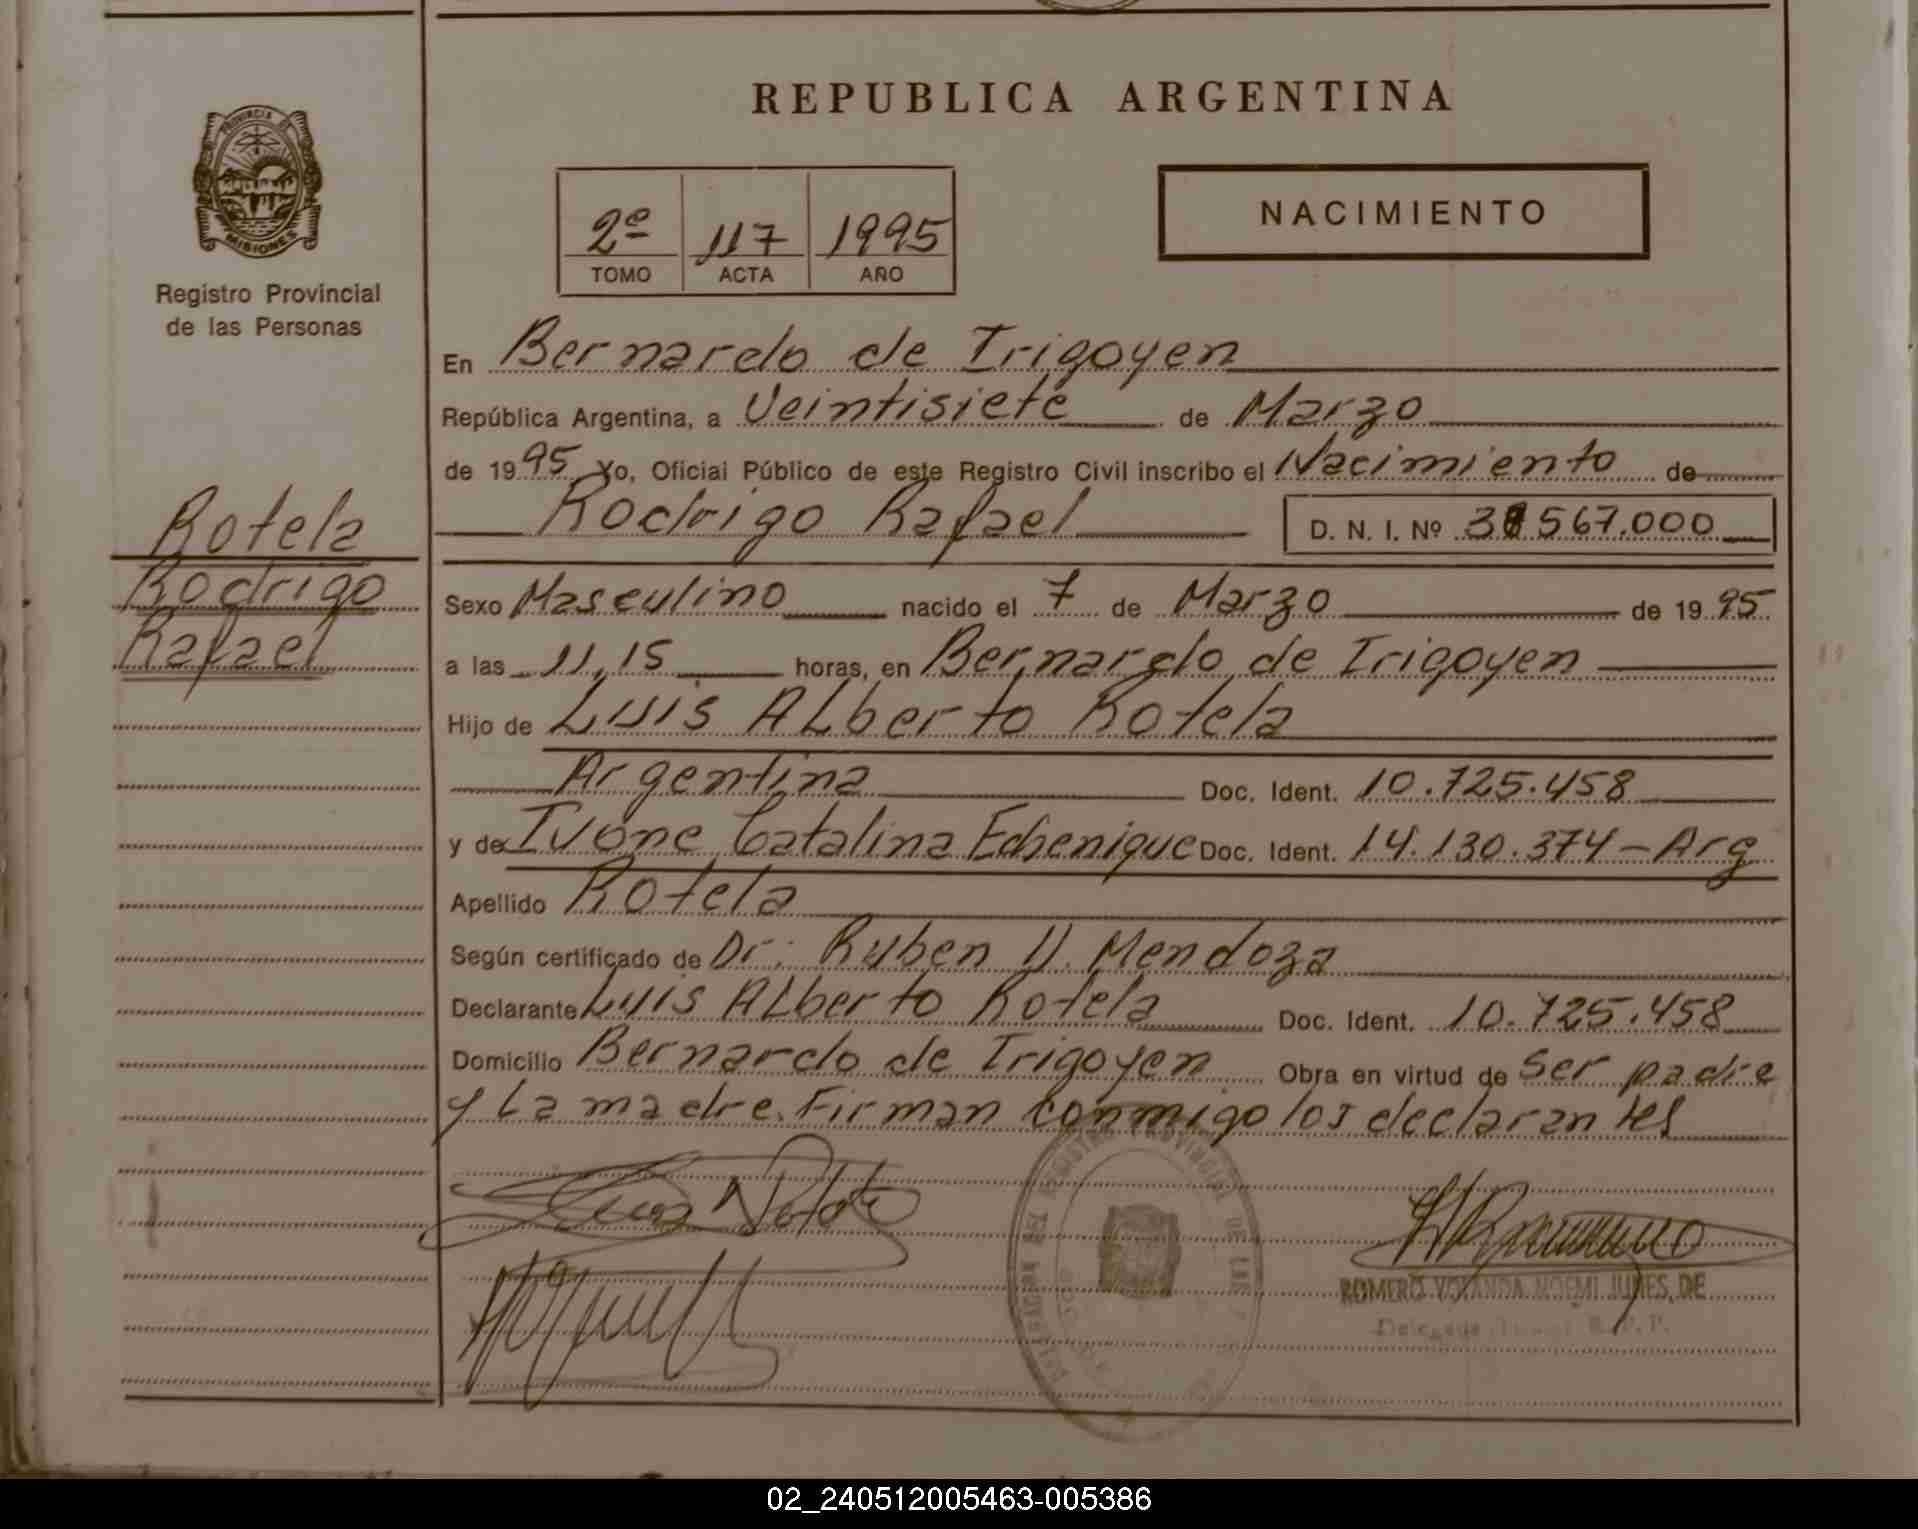 REPUBLICA ARGENTINA
PROVINCIA DE
MISIONES
Registro Provincial
de las Personas
2º 117 1995
TOMO ACTA AÑO
NACIMIENTO
En Bernardo de Irigoyen
República Argentina, a Veintisiete de Marzo
de 1995 Yo, Oficial Público de este Registro Civil inscribo el Nacimiento de
Rodrigo Rafael D. N. I. Nº 38567.000
Rotela
Rodrigo
Rafael
Sexo Masculino nacido el 7 de Marzo de 1995
a las 11,15 horas, en Bernardo de Irigoyen
Hijo de Luis ALberto Rotela
Argentina Doc. Ident. 10.725.458
y de Ivone Catalina Echenique Doc. Ident. 14.130.374-Arg
Apellido Rotela
Según certificado de Dr: Ruben D. Mendoza
Declarante Luis ALberto Rotela Doc. Ident. 10.725.458
Domicilio Bernardo de Irigoyen Obra en virtud de Ser padre
y La madre. Firman conmigo los declarantes
ROMERO YOLANDA NOEMI DE
R.P.P.
02_240512005463-005386